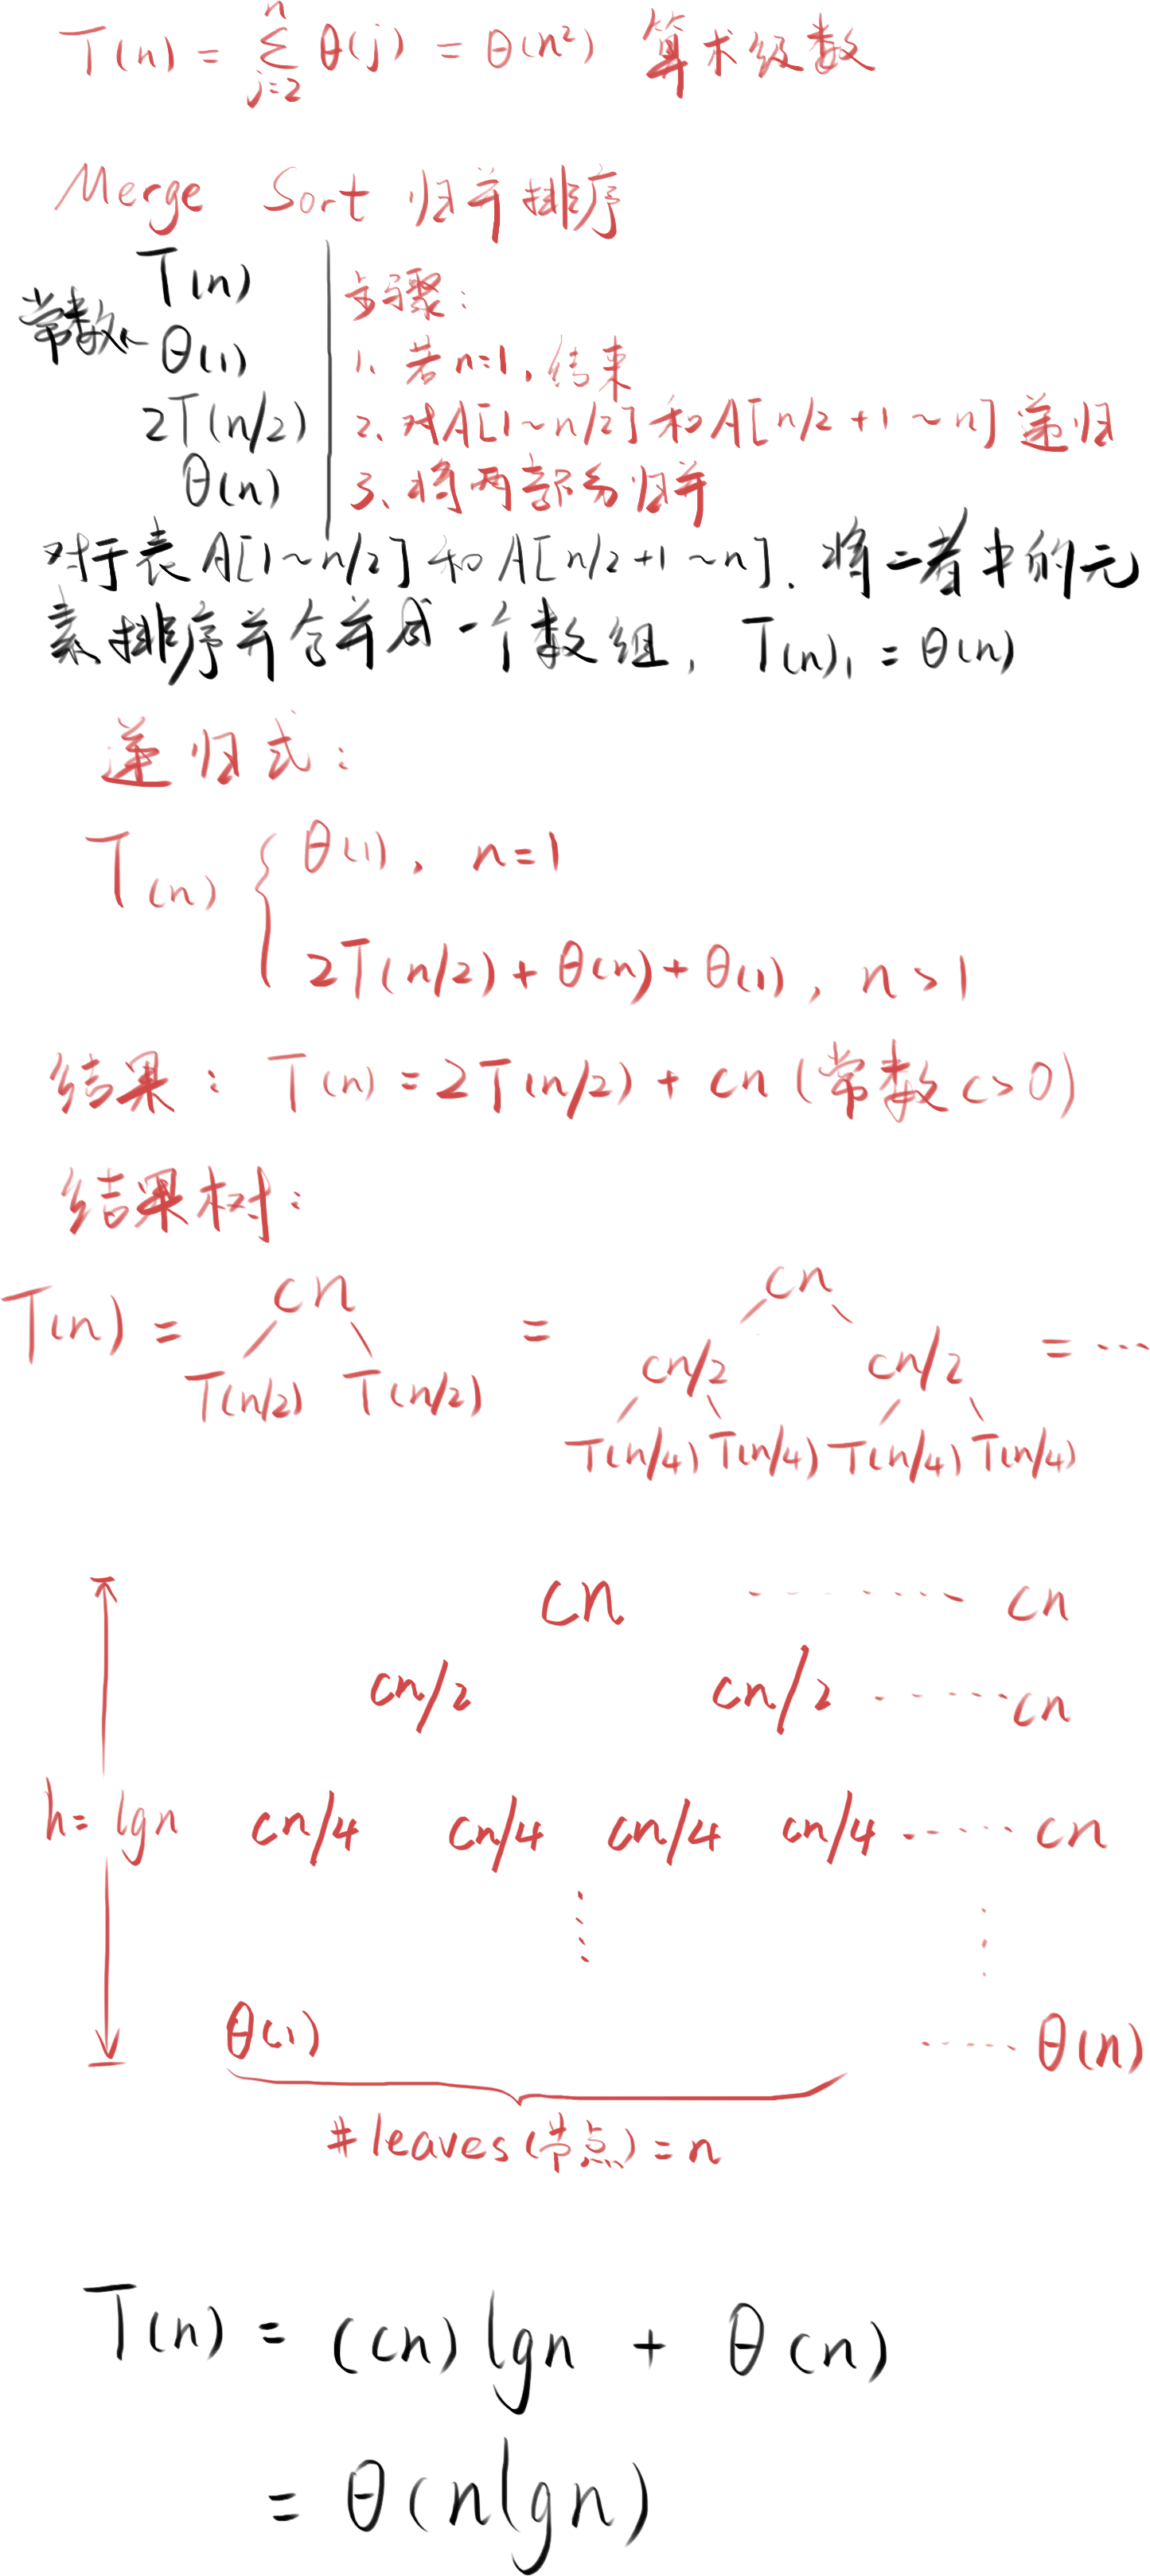 T(n) = n∑j=2 θ(j) = θ(n²) 算术级数
Merge Sort 归并排序
T(n) 步骤:
常数← θ(1) 1、若n=1，结束
2T(n/2) 2、对A[1~n/2]和A[n/2+1~n]递归
θ(n) 3、将两部分归并
对于表A[1~n/2]和A[n/2+1~n]，将二者中的元
素排序并合并成一个数组，T(n)₁ = θ(n)
递归式：
T(n) { θ(1)，n=1
2T(n/2)+θ(n)+θ(1)，n>1
结果：T(n)=2T(n/2)+cn（常数c>0）
结果树：
T(n) = cn = cn = ···
cn/2 cn/2
T(n/2) T(n/2)
T(n/4) T(n/4) T(n/4) T(n/4)
cn ········ cn
cn/2 cn/2 ······ cn
h=lgn cn/4 cn/4 cn/4 cn/4 ······ cn
θ(1) ······ θ(n)
#leaves(节点)=n
T(n) = (cn)lgn + θ(n)
= θ(nlgn)